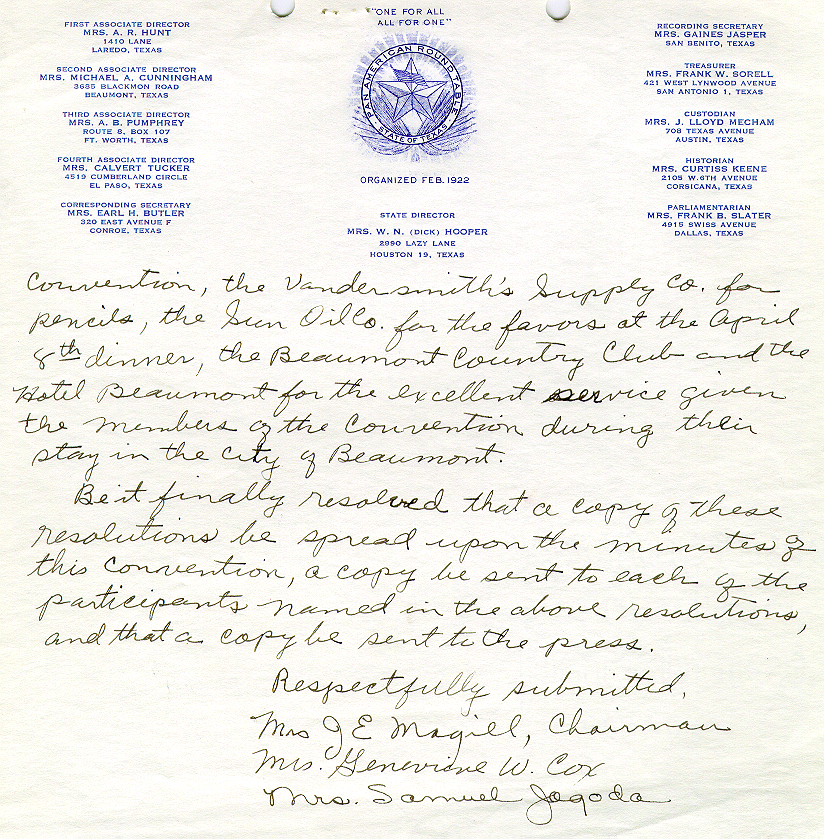 "ONE FOR ALL
ALL FOR ONE"
FIRST ASSOCIATE DIRECTOR
MRS. A. R. HUNT
1410 LANE
LAREDO, TEXAS
SECOND ASSOCIATE DIRECTOR
MRS. MICHAEL A. CUNNINGHAM
3685 BLACKMON ROAD
BEAUMONT, TEXAS
THIRD ASSOCIATE DIRECTOR
MRS. A. B. PUMPHREY
ROUTE 8, BOX 107
FT. WORTH, TEXAS
FOURTH ASSOCIATE DIRECTOR
MRS. CALVERT TUCKER
4519 CUMBERLAND CIRCLE
EL PASO, TEXAS
CORRESPONDING SECRETARY
MRS. EARL H. BUTLER
320 EAST AVENUE F
CONROE, TEXAS
PAN AMERICAN ROUND TABLE
STATE OF TEXAS
ORGANIZED FEB. 1922
STATE DIRECTOR
MRS. W. N. (DICK) HOOPER
2990 LAZY LANE
HOUSTON 19, TEXAS
RECORDING SECRETARY
MRS. GAINES JASPER
SAN BENITO, TEXAS
TREASURER
MRS. FRANK W. SORELL
421 WEST LYNWOOD AVENUE
SAN ANTONIO 1, TEXAS
CUSTODIAN
MRS. J. LLOYD MECHAM
708 TEXAS AVENUE
AUSTIN, TEXAS
HISTORIAN
MRS. CURTISS KEENE
2105 W. 6TH AVENUE
CORSICANA, TEXAS
PARLIAMENTARIAN
MRS. FRANK B. SLATER
4915 SWISS AVENUE
DALLAS, TEXAS
Convention, the Vandersmith's Supply Co. for
pencils, the Sun Oil Co. for the favors at the April
8th dinner, the Beaumont Country Club and the
Hotel Beaumont for the excellent service given
the members of the Convention during their
stay in the city of Beaumont.
Be it finally resolved that a copy of these
resolutions be spread upon the minutes of
this Convention, a copy be sent to each of the
participants named in the above resolutions,
and that a copy be sent to the press.
Respectfully submitted,
Mrs J E Magill, Chairman
Mrs. Genevieve W. Cox
Mrs. Samuel Jagoda